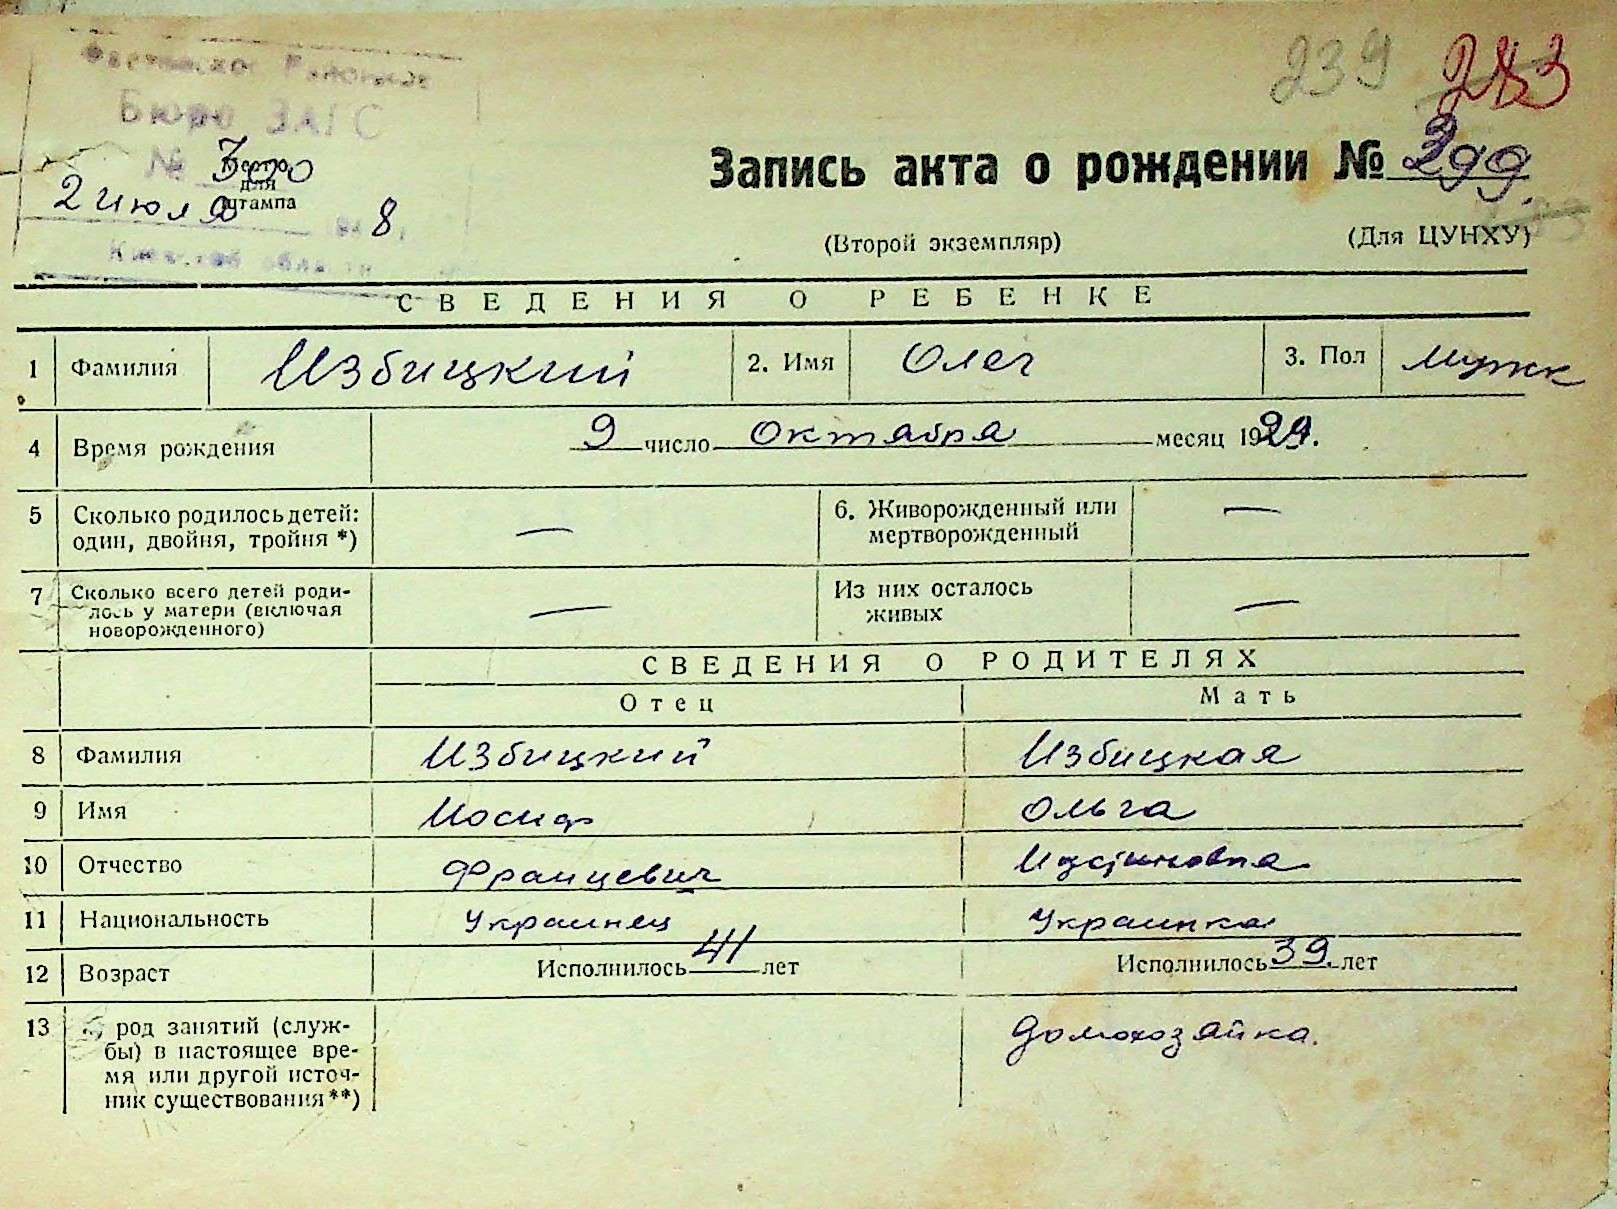 239 283
Районное
Бюро ЗАГС
№
для
2 июля штампа 8
Киевской области
Запись акта о рождении № 299.
(Второй экземпляр) (Для ЦУНХУ)
СВЕДЕНИЯ О РЕБЕНКЕ
1 Фамилия Избицкий 2. Имя Олег 3. Пол мужк
4 Время рождения 9 число Октября месяц 1924.
5 Сколько родилось детей: — 6. Живорожденный или —
один, двойня, тройня *) мертворожденный
7 Сколько всего детей роди- — Из них осталось —
лось у матери (включая живых
новорожденного)
СВЕДЕНИЯ О РОДИТЕЛЯХ
Отец Мать
8 Фамилия Избицкий Избицкая
9 Имя Иосиф Ольга
10 Отчество Францевич
11 Национальность Украинец Украинка
12 Возраст Исполнилось 41 лет Исполнилось 39. лет
13 а) род занятий (служ- домохозяйка.
бы) в настоящее вре-
мя или другой источ-
ник существования **)